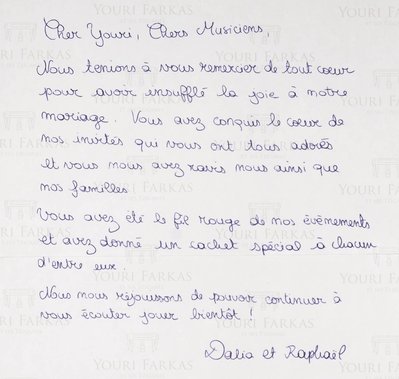 Cher Youri, Chers Musiciens,
Nous tenions à vous remercier de tout cœur
pour avoir insufflé la joie à notre
mariage. Vous avez conquis le cœur de
nos invités qui vous ont tous adorés
et vous nous avez ravis nous ainsi que
nos familles.
Vous avez été le fil rouge de nos évènements
et avez donné un cachet spécial à chacun
d'entre eux.
Nous nous réjouissons de pouvoir continuer à
vous écouter jouer bientôt !
Dalia et Raphaël
YOURI FARKAS